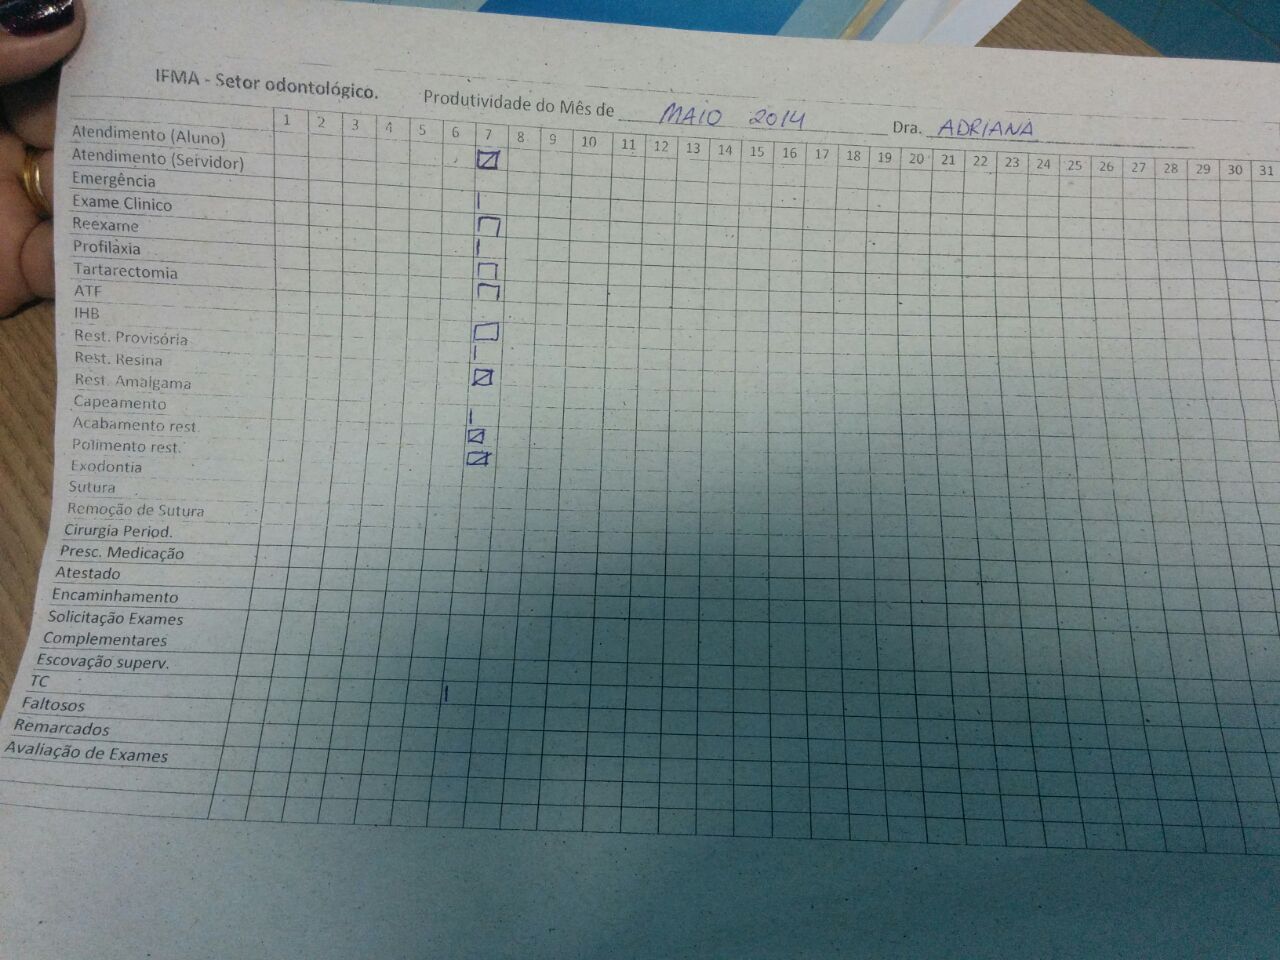 IFMA - Setor odontológico. Produtividade do Mês de MAIO 2014 Dra. ADRIANA
1 2 3 4 5 6 7 8 9 10 11 12 13 14 15 16 17 18 19 20 21 22 23 24 25 26 27 28 29 30 31
Atendimento (Aluno)
Atendimento (Seividor)
Emergência
Exame Clinico
Reexame
Profilaxia
Tartarectomia
ATF
IHB
Rest. Provisória
Rest. Resina
Rest. Amalgama
Capeamento
Acabamento rest.
Polimento rest.
Exodontia
Sutura
Remoção de Sutura
Cirurgia Period.
Presc. Medicação
Atestado
Encaminhamento
Solicitação Exames
Complementares
Escovação superv.
TC
Faltosos
Remarcados
Avaliação de Exames